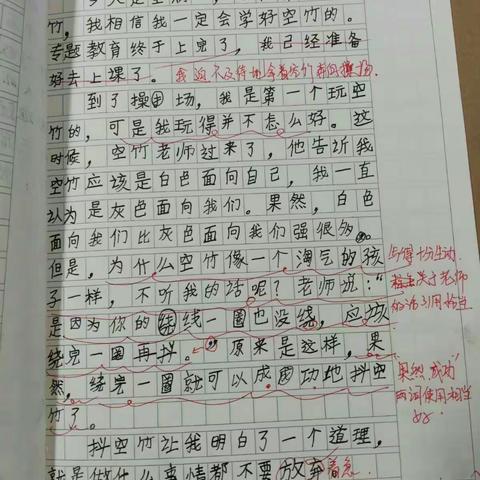 竹，我相信我一定会学好空竹的。
专题教育终于上完了，我已经准备
好去上课了。我迫不及待地拿着空竹
到了操场，我是第一个玩空
竹的，可是我玩得并不怎么好。这
时候，空竹老师过来了，他告诉我
空竹应该是白色面向自己，我一直
认为是灰色面向我们。果然，白色
面向我们比灰色面向我们强很多。
但是，为什么空竹像一个淘气的孩
子一样，不听我的话呢？老师说：“
是因为你的线一圈也没绕，应该
绕完一圈再抖。”原来是这样，果
然，绕完一圈就可以成功地抖空
竹了。
抖空竹让我明白了一个道理，
就是做什么事情都不要放弃着急
写得十分生动
老师
的话引用恰当
“果然”“成功”
两词使用相当
好